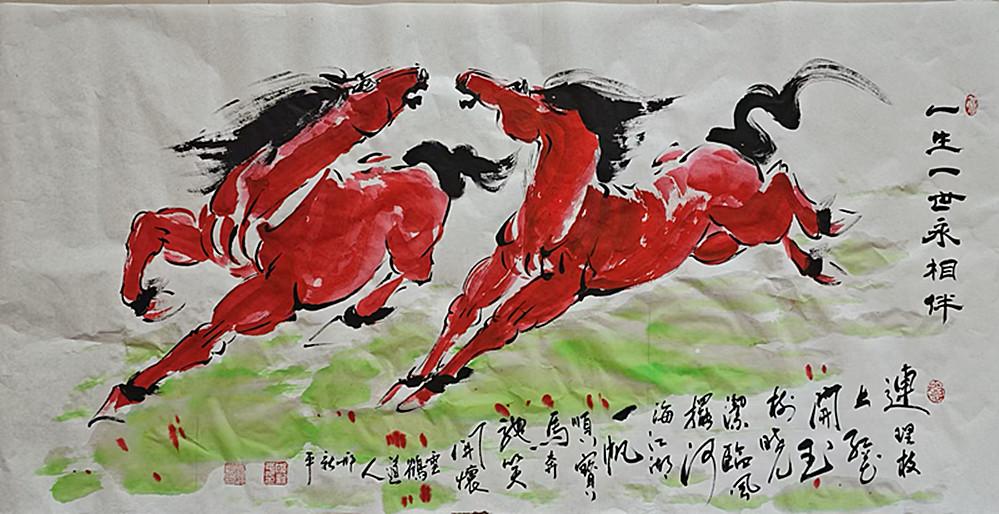 一生一世永相伴
連理枝
上紅花
開玉
樹曉
潔臨風
河
海江湖
一帆
順寶
馬奔
馳笑
開懷
雲鶴
道
人
邢秋
平